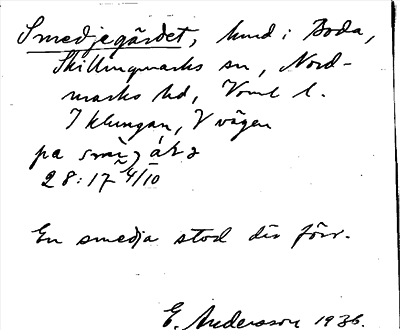 Smedjegärdet, hmd i Boda,
Skillingmarks sn, Nord-
marks hd, Vrml l.
I klungan, V vägen
pa
28:17 4/10
En smedja stod där förr.
E. Andersson 1936.